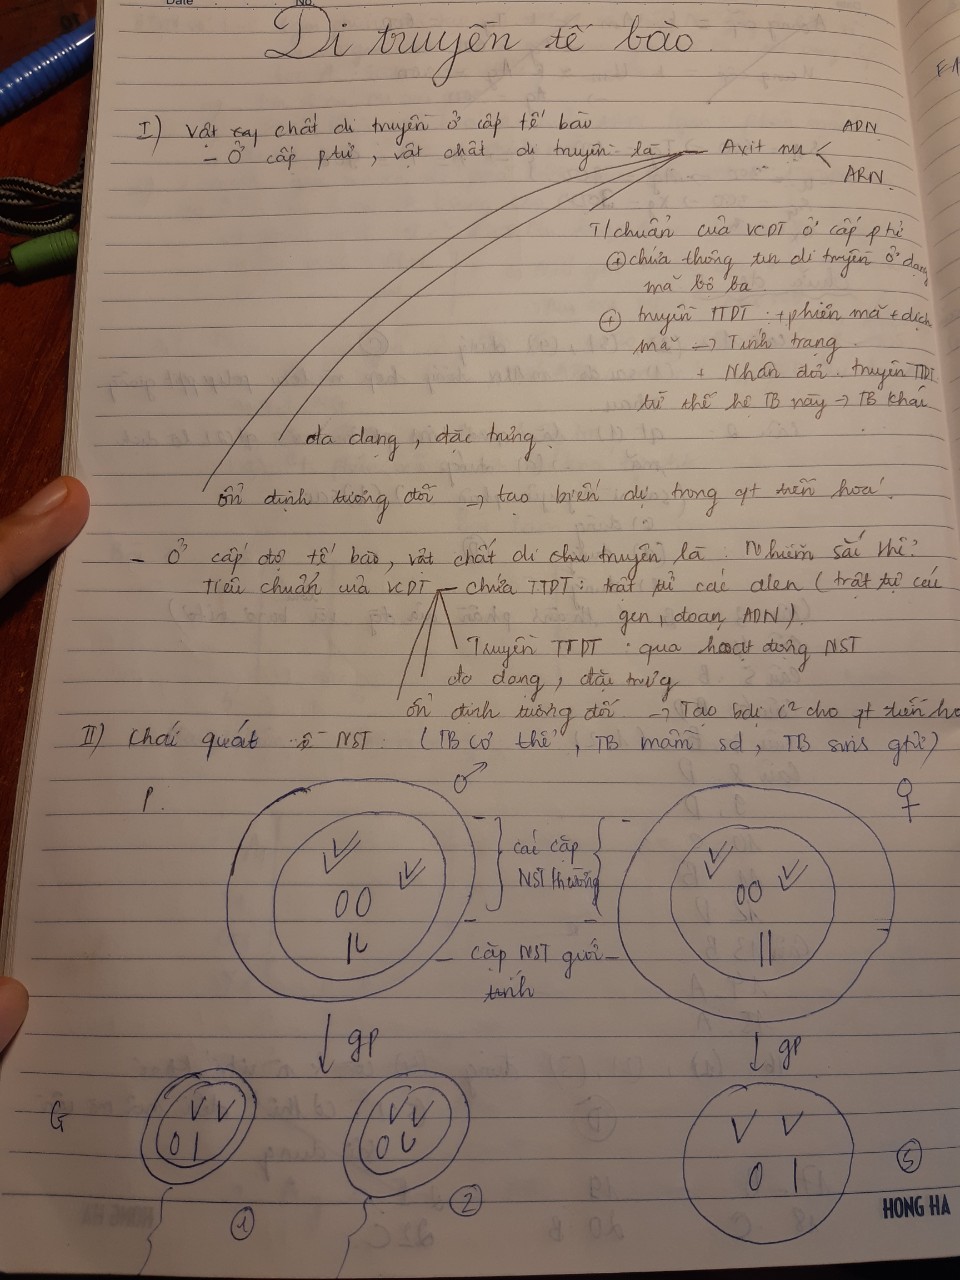 Date No.
Di truyền tế bào
I) Vật chất di truyền ở cấp tế bào
- Ở cấp ptử, vật chất di truyền là — Axit nu < ADN
ARN
T/chuẩn của VCDT ở cấp ptử
+ chứa thông tin di truyền ở dạng
mã bộ ba
+ truyền TTDT : + phiên mã + dịch
mã -> Tính trạng
+ Nhân đôi. truyền TTDT
từ thế hệ TB này -> TB khác
đa dạng, đặc trưng
ổn định tương đối -> tạo biến dị trong qt tiến hoá.
- Ở cấp độ tế bào, vật chất di truyền là Nhiễm sắc thể
Tiêu chuẩn của VCDT — chứa TTDT: trật tự các alen (trật tự các
gen, đoạn ADN).
Truyền TTDT : qua hoạt động NST
đa dạng, đặc trưng
ổn định tương đối -> Tạo bdị c² cho qt tiến hoá
II) Khái quát về NST. (TB cơ thể, TB mầm sd, TB sinh gtử)
P. ♂ ♀
các cặp
NST thường
cặp NST giới
tính
gp gp
G
1 2 5
HONG HA